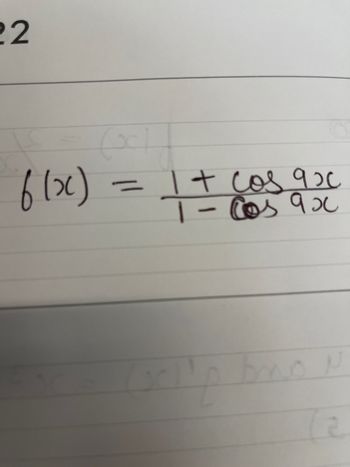 22
f(x) = 1 + cos 9x
1 - cos 9x